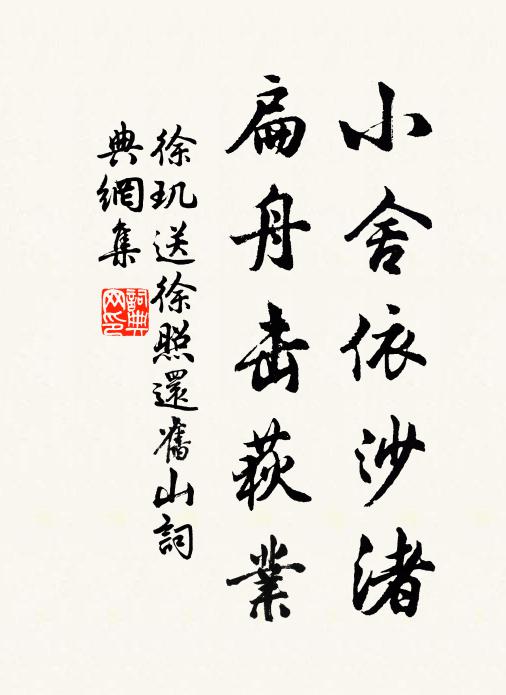 小舍依沙渚
扁舟击荻業
徐玑送徐照還舊山詞
典網集
詞典网印